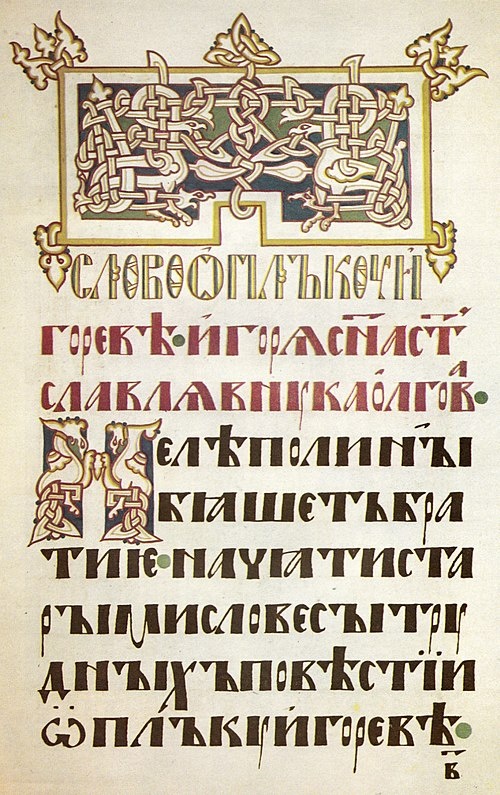 СЛОВООПЛЪКОУИ
ГОРЕВѢ·ИГОРѦСН҃АСТ҃
СЛАВЛѦВНꙊКАОЛГОВⷶ·
НЕЛѢПОЛИНꙐ
БꙖШЕТЬБРА
ТИѤ·НАЧꙖТИСТА
РꙐМИСЛОВЕСꙐТРꙊ
ДНꙐХЪПОВѢСТІИ
ѾПЛЪКꙊИГОРЕВѢ·
в҃